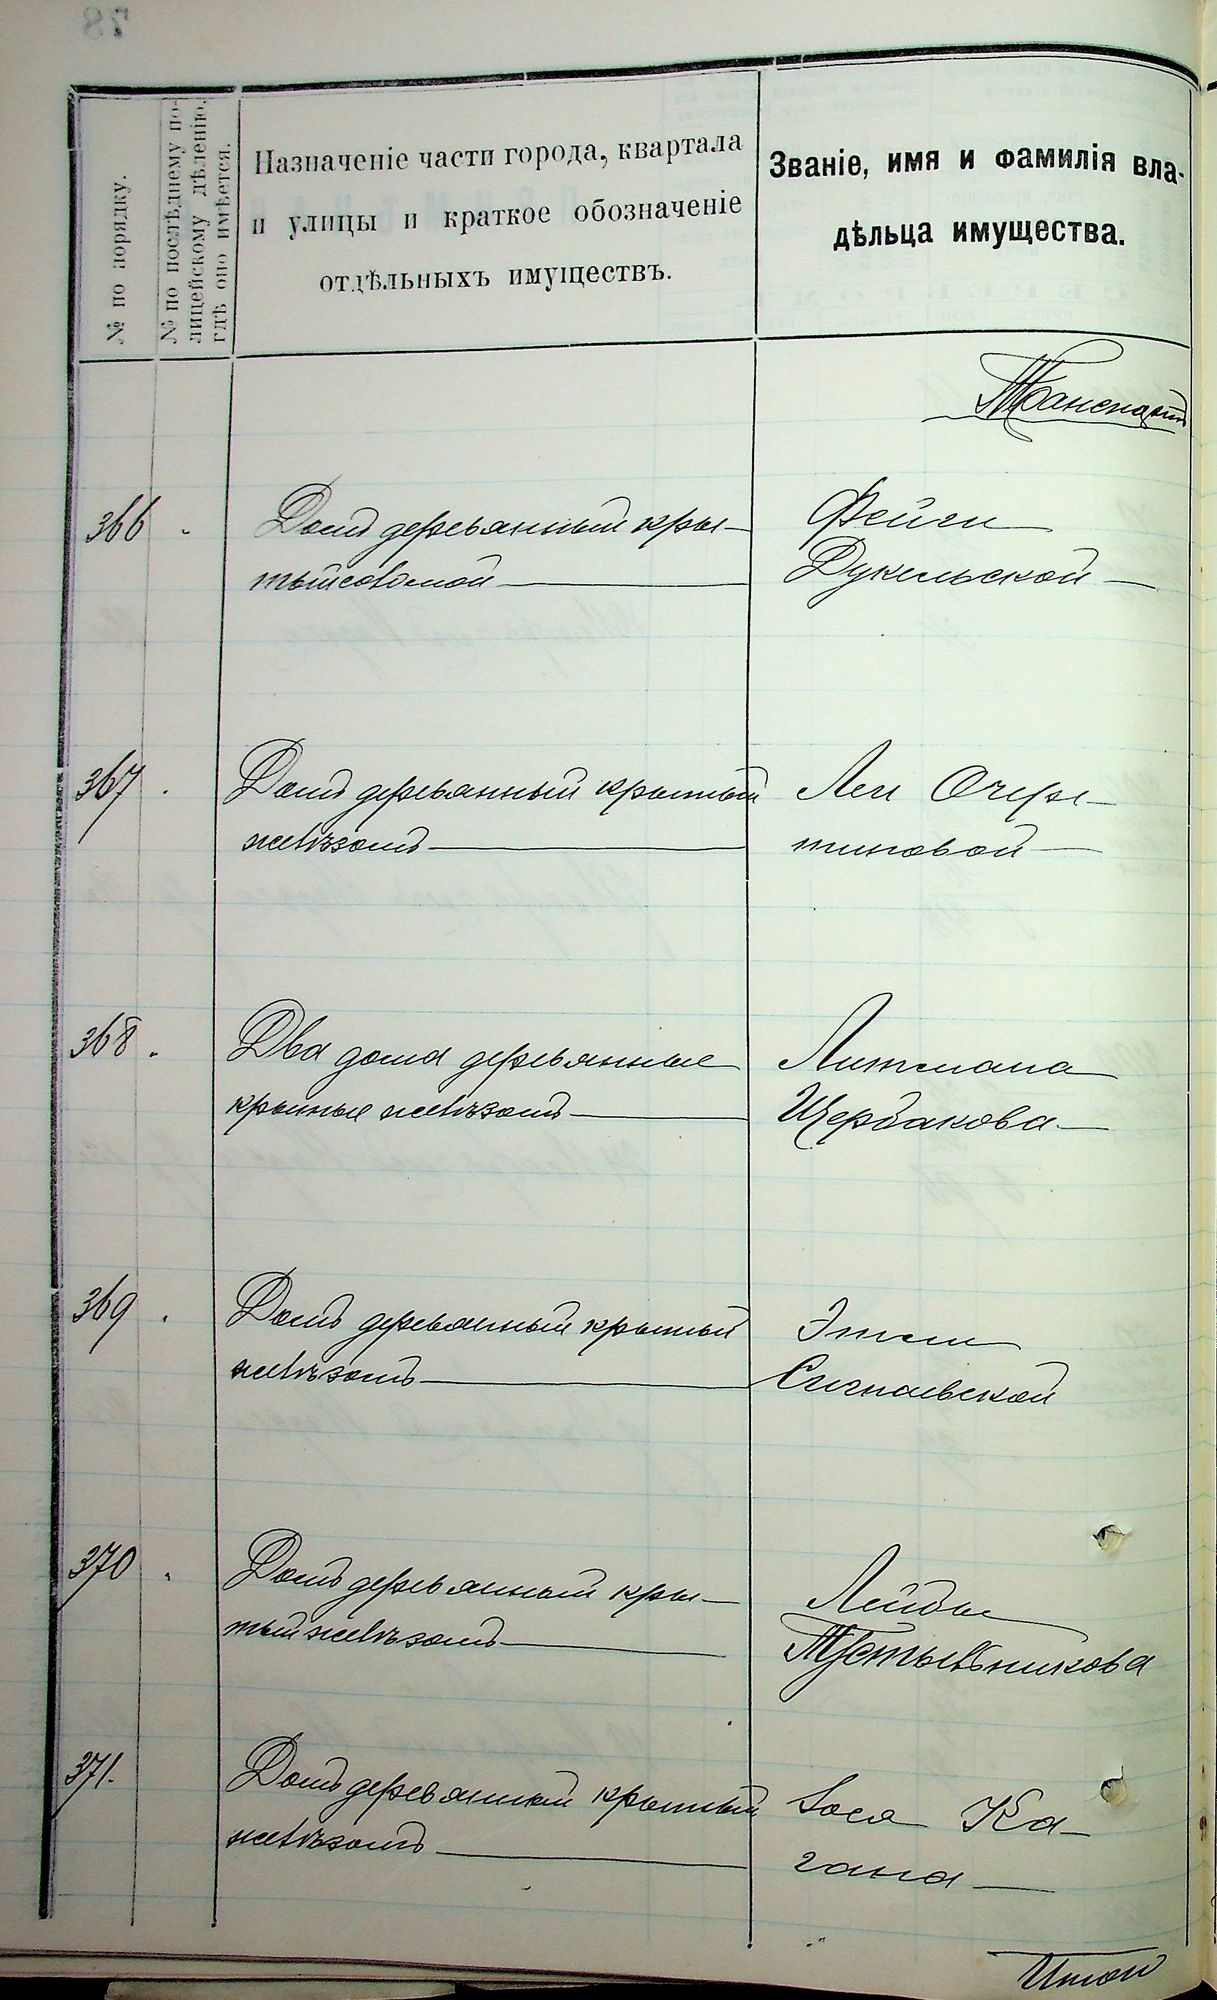 № по порядку.
№ по послѣднему по-
лицейскому дѣленію,
гдѣ оно имѣется.
Назначеніе части города, квартала
и улицы и краткое обозначеніе
отдѣльныхъ имуществъ.
Званіе, имя и фамилія вла-
дѣльца имущества.
Транспортъ
366 Домъ деревянный кры-
тый соломой
Фейги
Дукельской
367 Домъ деревянный крытый
желѣзомъ
Леи Очере-
тиновой
368. Два дома деревянные
крытые желѣзомъ
Литмана
Щербакова
369. Домъ деревянный крытый
желѣзомъ
Этли
Сигнаевской
370 Домъ деревянный кры-
тый желѣзомъ
Лейбы
371. Домъ деревянный крытый
желѣзомъ
Ка-
гана
Итого